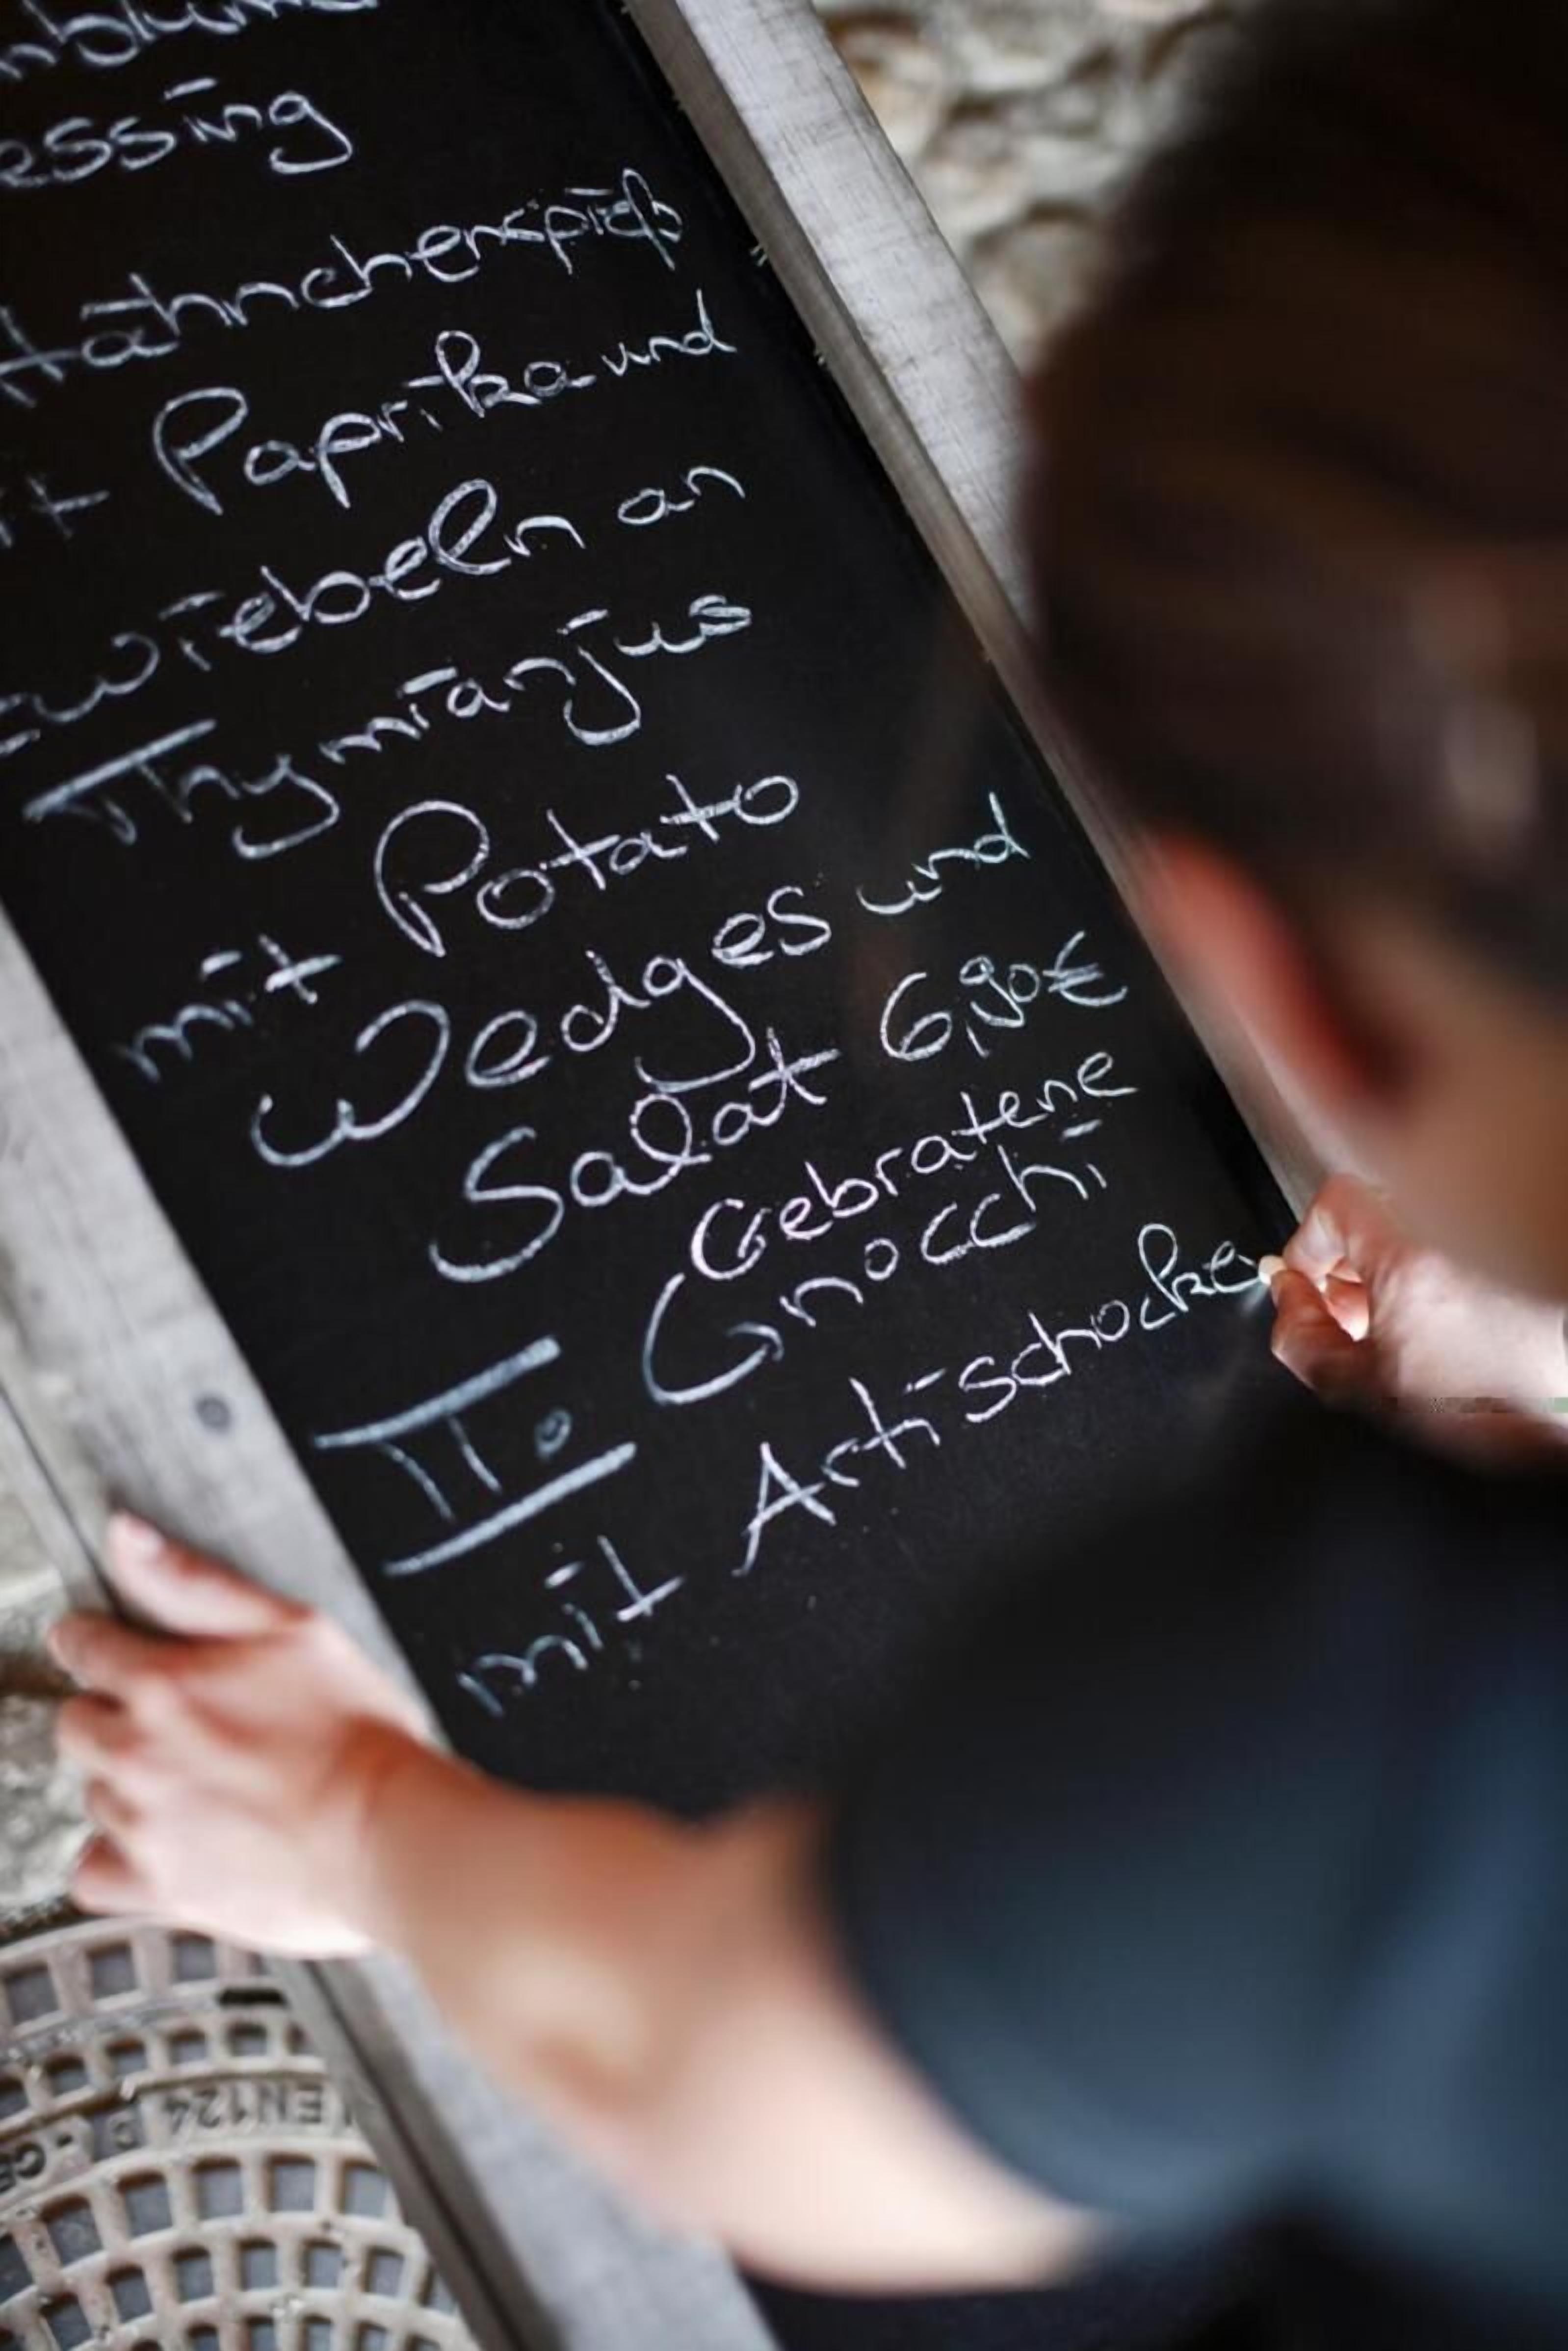 nblum
essing
Hähnchenspieß
it Paprika und
zwiebeln an
Thymianjus
mit Potato
Wedges und
Salat 6,90€
II. Gebratene
Gnocchi
mit Artischocke
EN124 D - GS